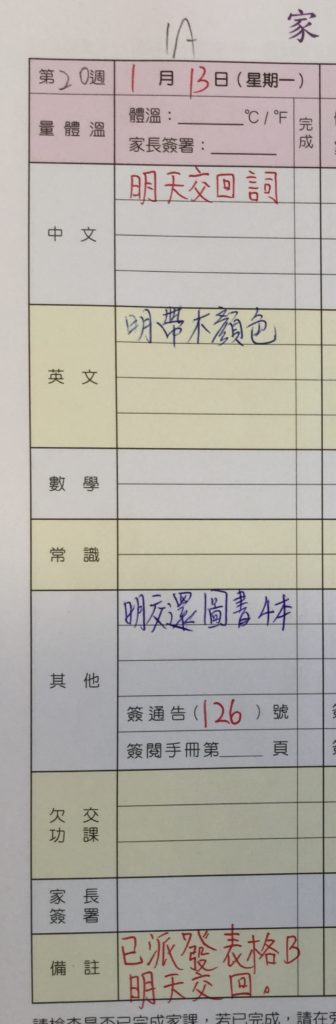 1A
家
第20週
1月13日(星期一)
量體溫
體溫：______℃/℉
家長簽署：______
完成
中文
明天交回詞
英文
明帶木顏色
數學
常識
其他
明交還圖書4本
簽通告(126)號
簽閱手冊第____頁
欠交功課
家長簽署
備註
已派發表格B
明天交回。